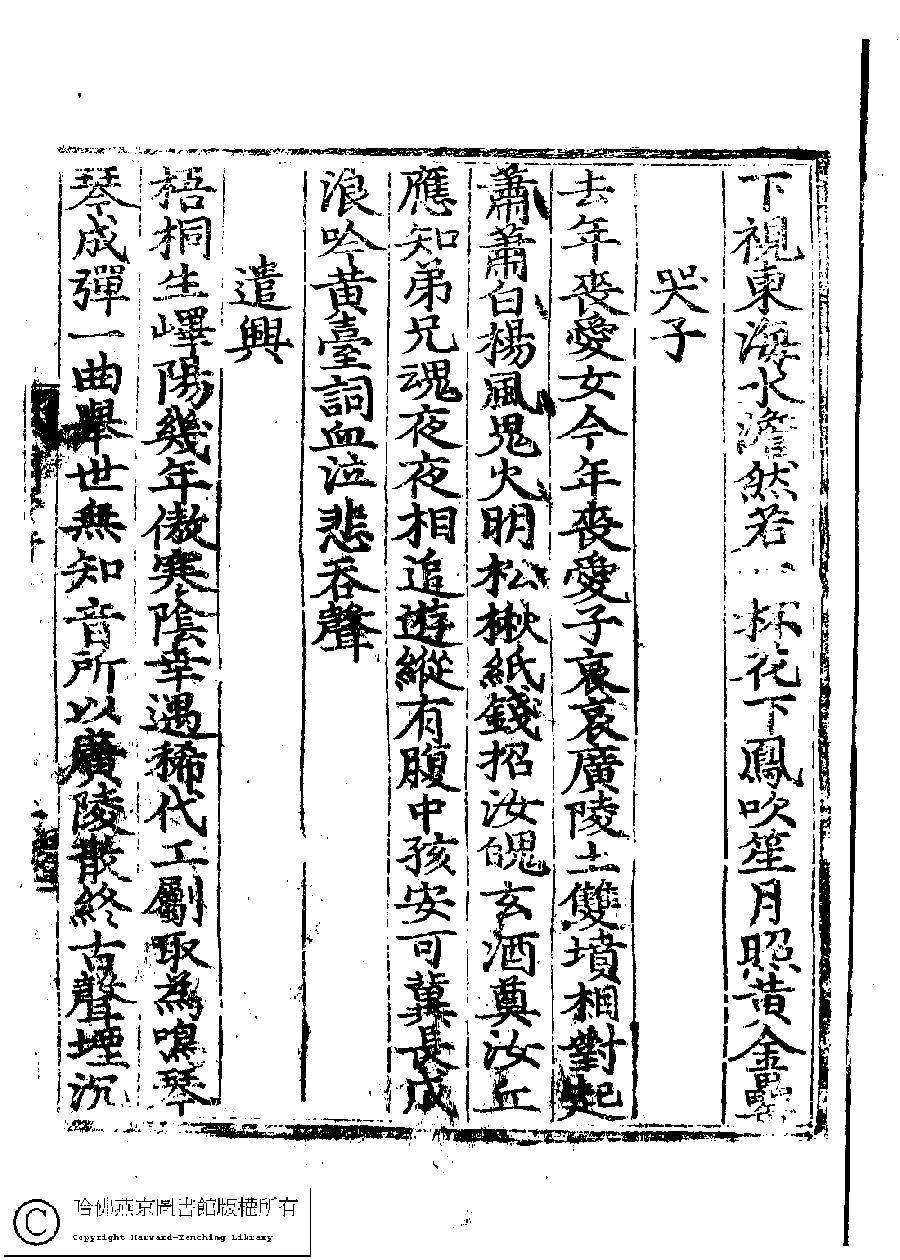 下視東海水澹然若一杯花下鳳吹笙月照黃金罍
哭子
去年喪愛女今年喪愛子哀哀廣陵土雙墳相對起
蕭蕭白楊風鬼火明松楸紙錢招汝魄玄酒奠汝丘
應知弟兄魂夜夜相追遊縱有腹中孩安可冀長成
浪吟黃臺詞血泣悲吞聲
遣興
梧桐生嶧陽幾年傲寒陰幸遇稀代工劚取為鳴琴
琴成彈一曲舉世無知音所以廣陵散終古聲堙沉
哈佛燕京圖書館版權所有
Copyright Harvard-Yenching Library